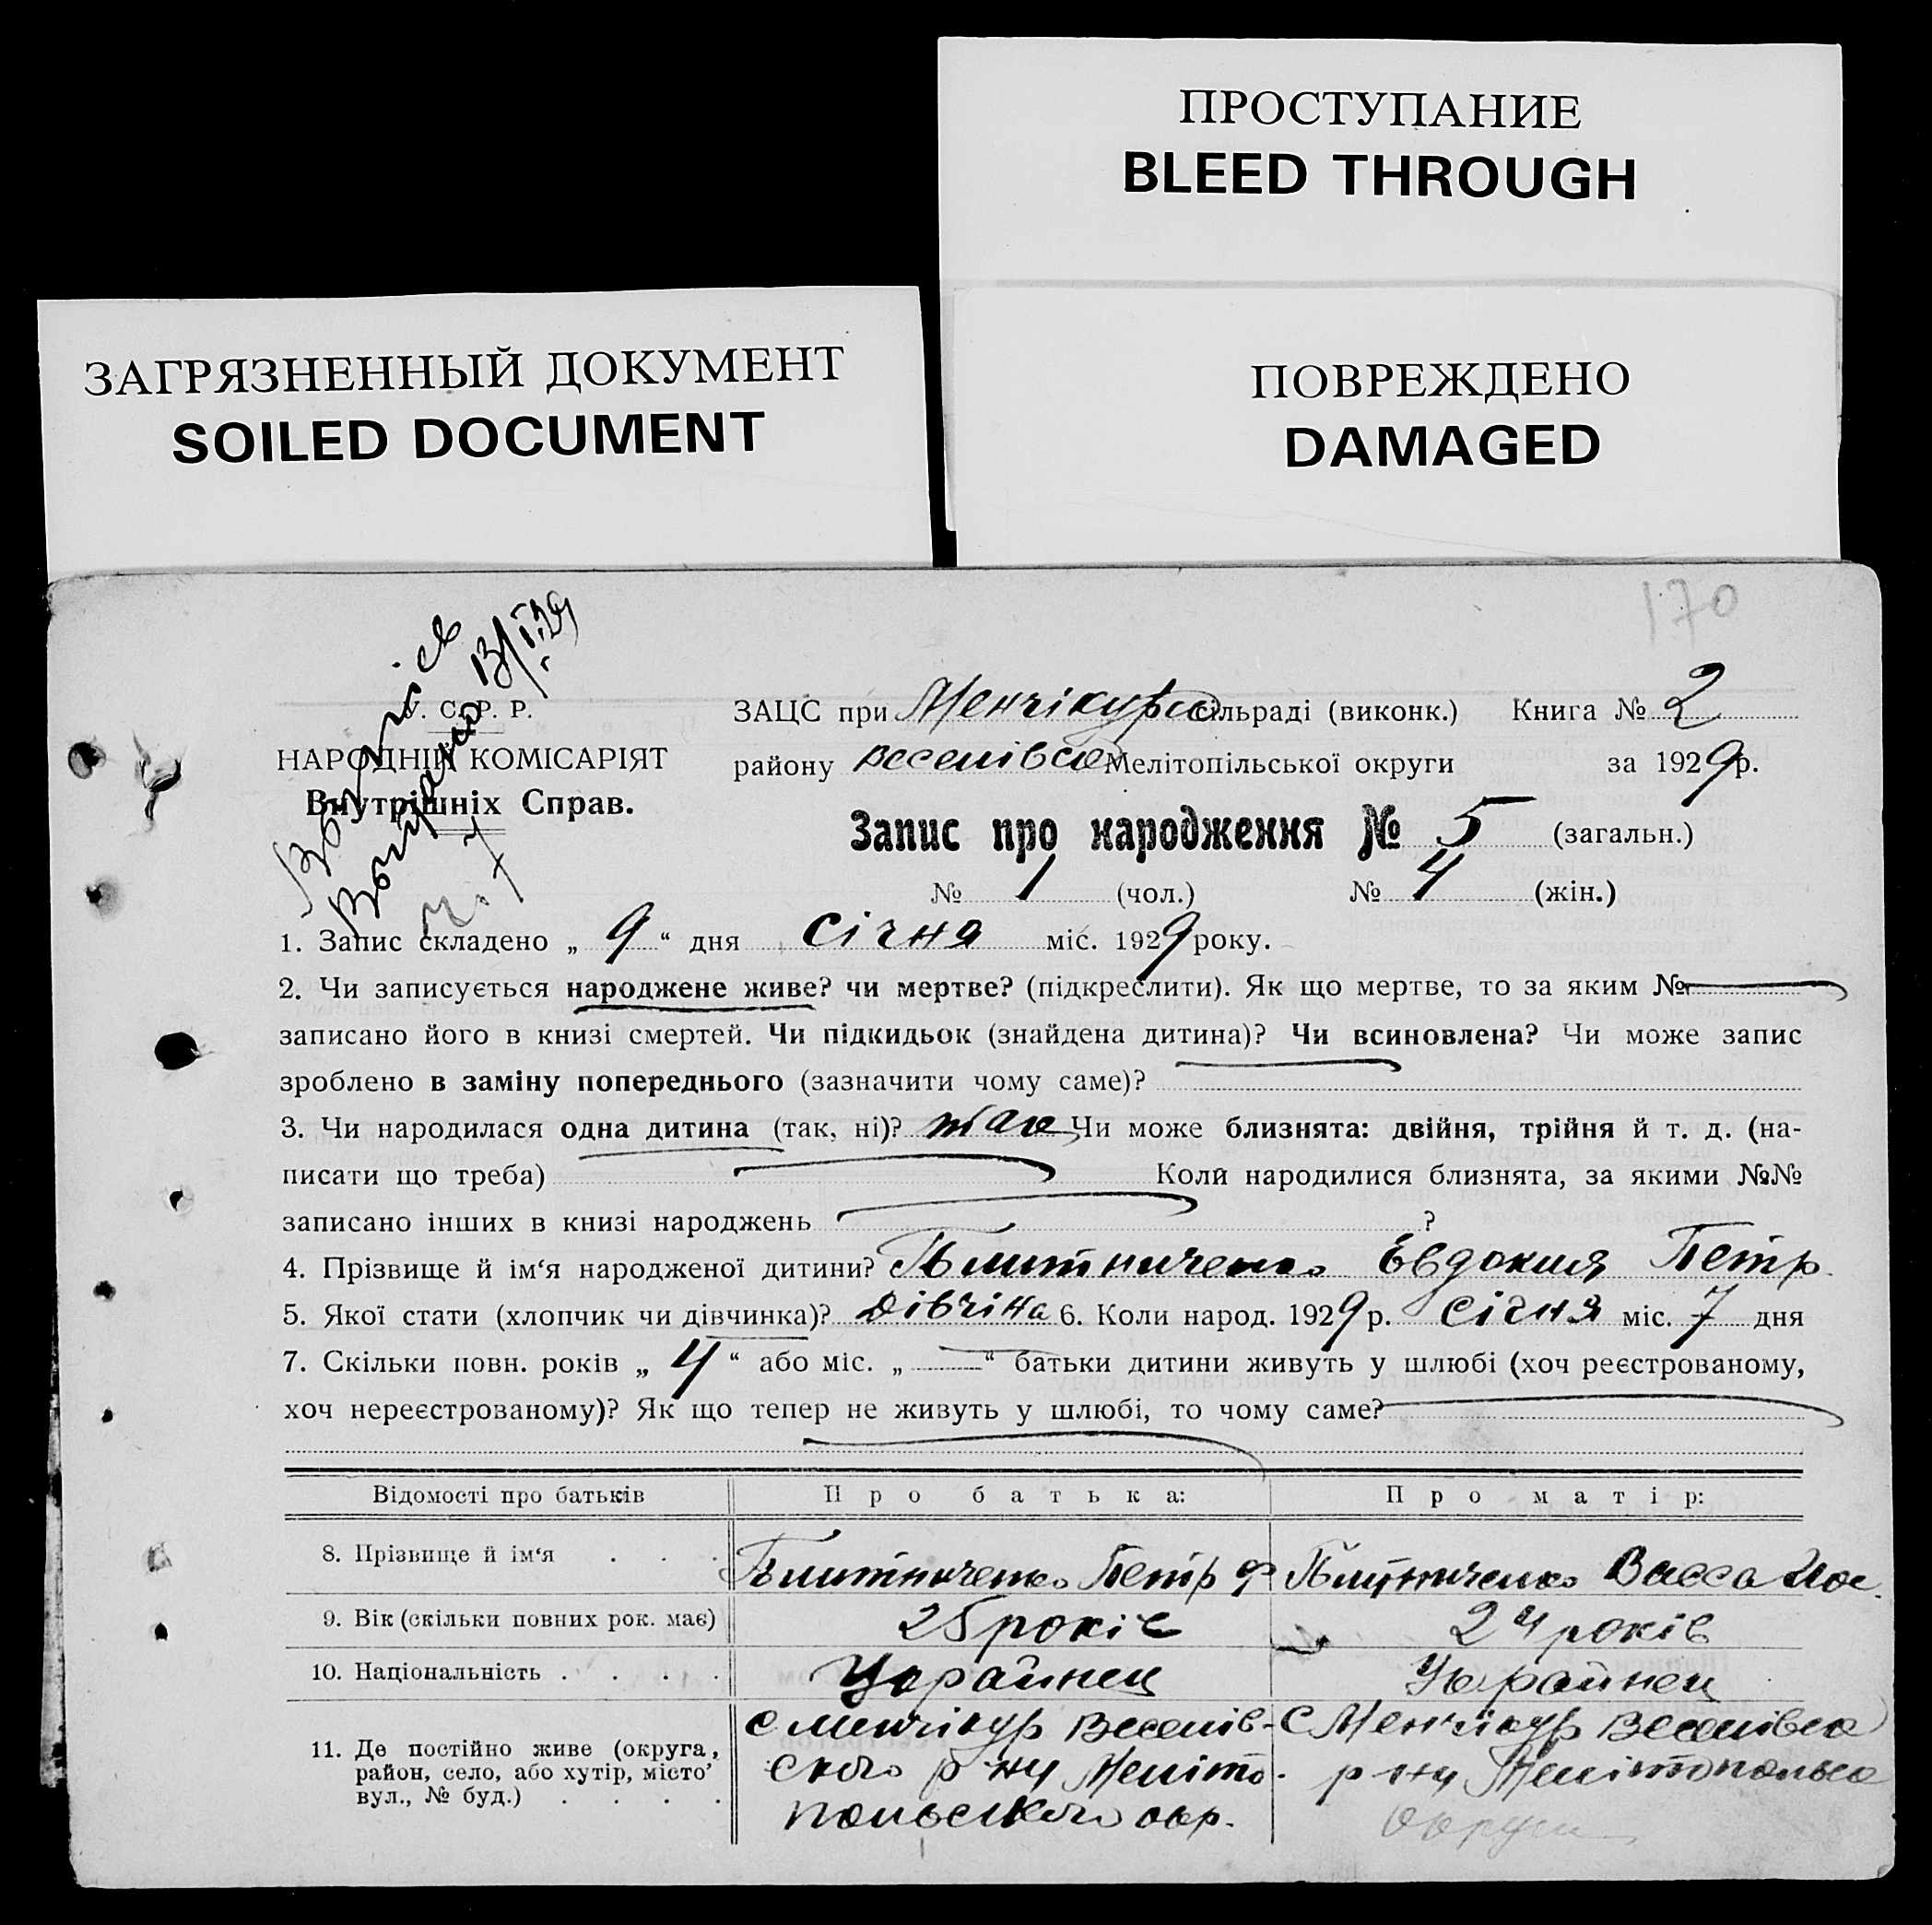 ПРОСТУПАНИЕ
BLEED THROUGH
ЗАГРЯЗНЕННЫЙ ДОКУМЕНТ
SOILED DOCUMENT
ПОВРЕЖДЕНО
DAMAGED
170
13/I.29
У. С. Р. Р.
НАРОДНІЙ КОМІСАРІЯТ
Внутрішніх Справ.
ЗАЦС при Менчікурск сільраді (виконк.) Книга № 2
району Веселівск Мелітопільської округи за 1929р.
Запис про народження № 5 (загальн.)
№ 1 (чол.) № 4 (жін.)
1. Запис складено „ 9 “ дня січня міс. 1929 року.
2. Чи записується народжене живе? чи мертве? (підкреслити). Як що мертве, то за яким №
записано його в книзі смертей. Чи підкидьок (знайдена дитина)? Чи всиновлена? Чи може запис
зроблено в заміну попереднього (зазначити чому саме)?
3. Чи народилася одна дитина (так, ні)? так Чи може близнята: двійня, трійня й т. д. (на-
писати що треба) Коли народилися близнята, за якими №№
записано інших в книзі народжень ?
4. Прізвище й ім‘я народженої дитини? Евдокия Петр.
5. Якої стати (хлопчик чи дівчинка)? Дівчіна 6. Коли народ. 1929 р. січня міс. 7 дня
7. Скільки повн. років „ 4 “ або міс. „ — “ батьки дитини живуть у шлюбі (хоч реєстрованому,
хоч нереєстрованому)? Як що тепер не живуть у шлюбі, то чому саме?
Відомості про батьків Про батька: Про матір:
8. Прізвище й ім‘я . . . Петр Ф Васса Иос.
9. Вік (скільки повних рок. має) 25 років 24 років
10. Національність . . . . Украйнец Украйнец
11. Де постійно живе (округа, с Менчікур Веселів- С Менчікур Веселівск
район, село, або хутір, місто’ ского р-ну Меліто- р-ну Мелітопольск
вул., № буд.) . . . . польского окр. округи